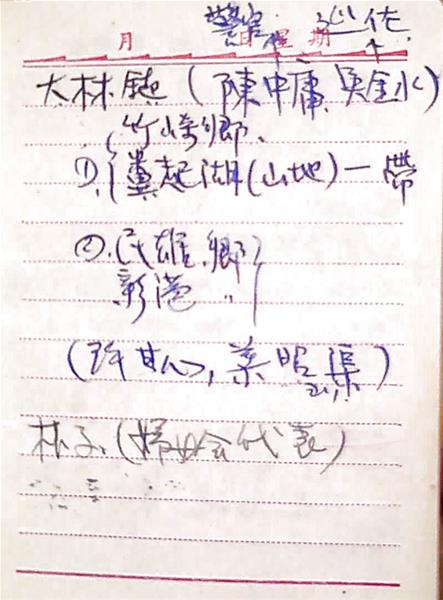 月 日 星期
大林鎮(陳中庸、吳金水)
竹崎鄉、
①、奮起湖(山地)一帶
②、民雄鄉
新港〃
(許甘心,葉昭集)
林子、(婦女會代表)